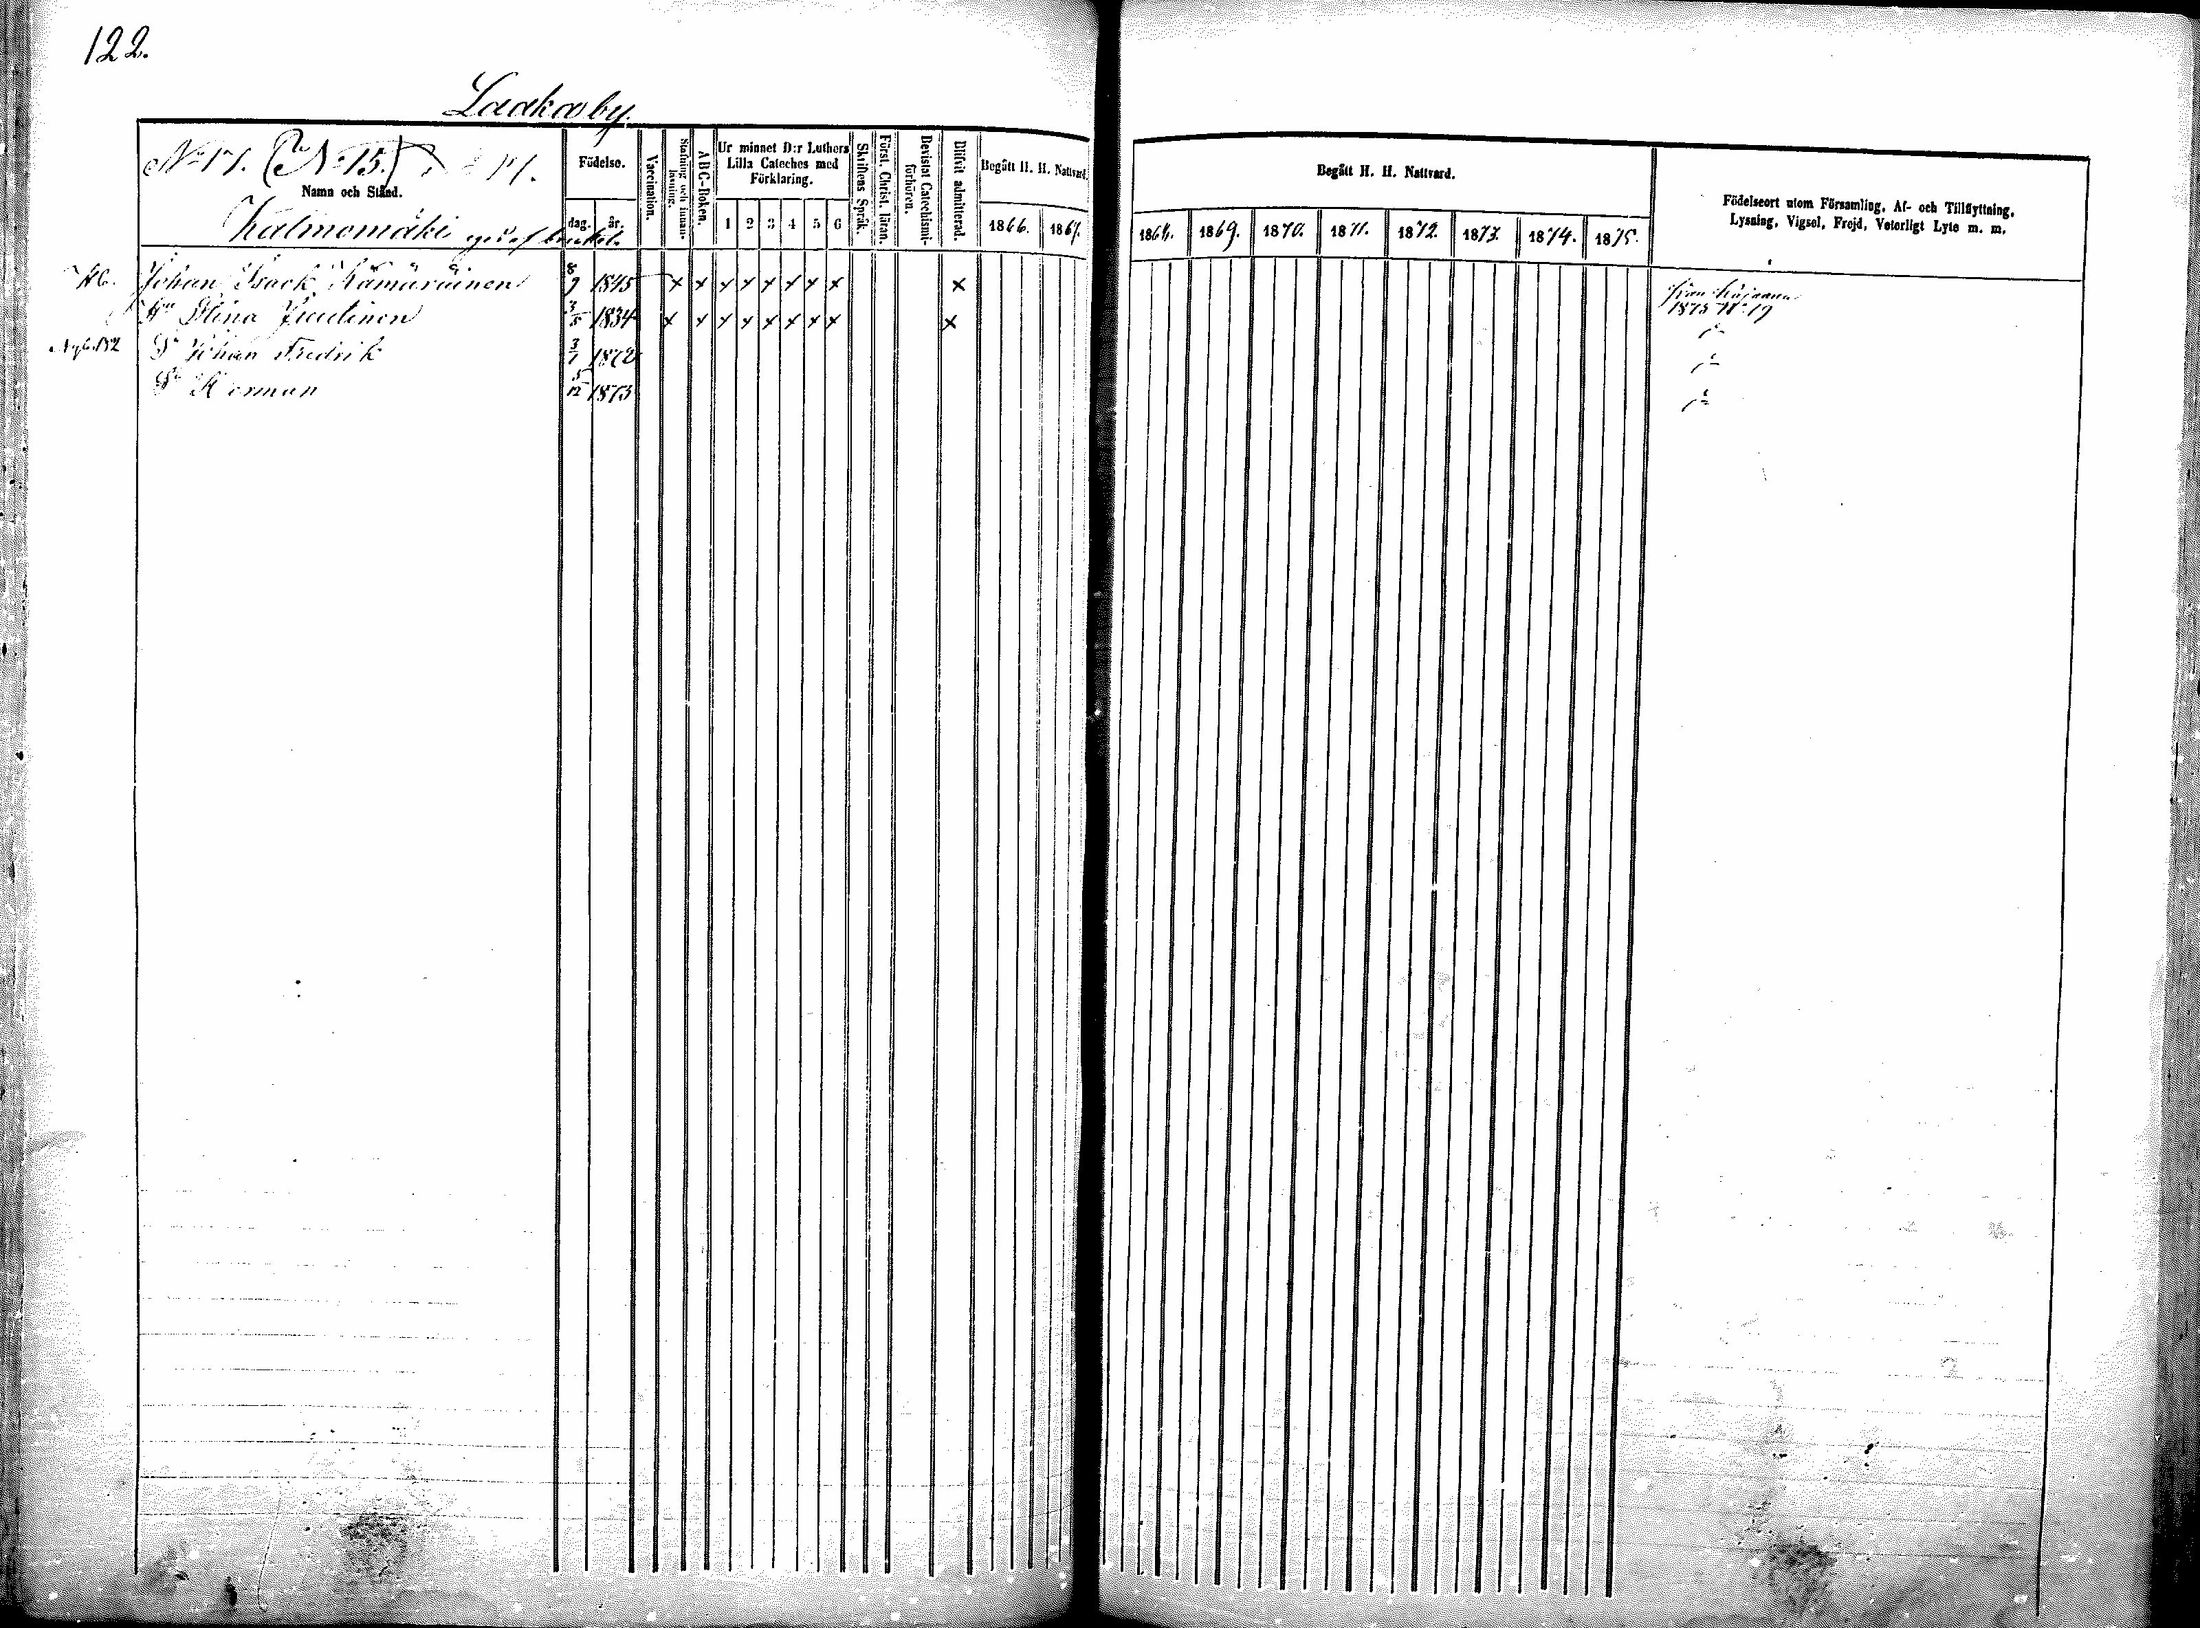 122.
Laakaby.
No 17. (No 15.)
Namn och Stånd.
Födelse.
dag. år.
Vaccination.
Stafning och innan-läsning.
ABC-Boken.
Ur minnet D:r Luthers Lilla Cateches med Förklaring.
1 2 3 4 5 6
Skriftens Språk.
Först. Christ. läran.
Bevistat Catechismi-förhören.
Blifvit admitterad.
Begått H. H. Nattvard.
1866. 1867.
Begått H. H. Nattvard.
1868. 1869. 1870. 1871. 1872. 1873. 1874. 1875.
Födelseort utom Församling, Af- och Tillflyttning,
Lysning, Vigsel, Frejd, Veterligt Lyte m. m.
Kalmomäki
Johan Isack Kämäräinen 8/9 1845 x x x x x x x x x
Hu Stina Juutinen 3/5 1834 x x x x x x x x x
från Kajaana
1875 No 19
S. Johan Fredrik 3/1 1872
S. Herman 5/12 1873